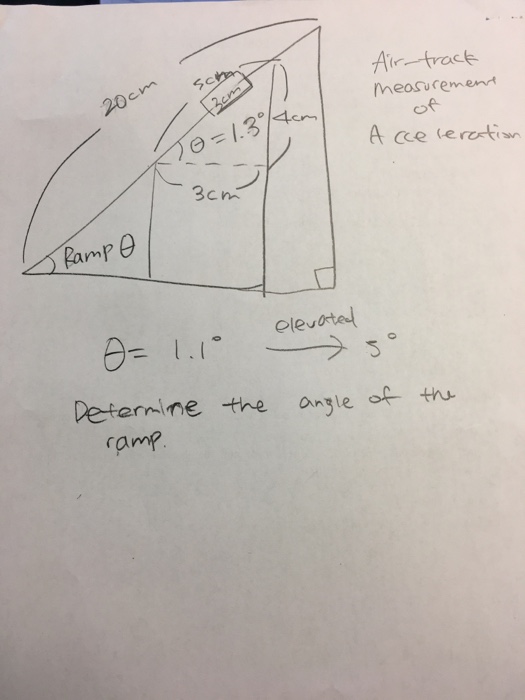 Air-track
measurement
of
Acceleration
20cm
5cm
3cm
θ = 1.3°
4cm
3cm
Ramp θ
θ = 1.1° elevated → 5°
Determine the angle of the
ramp.